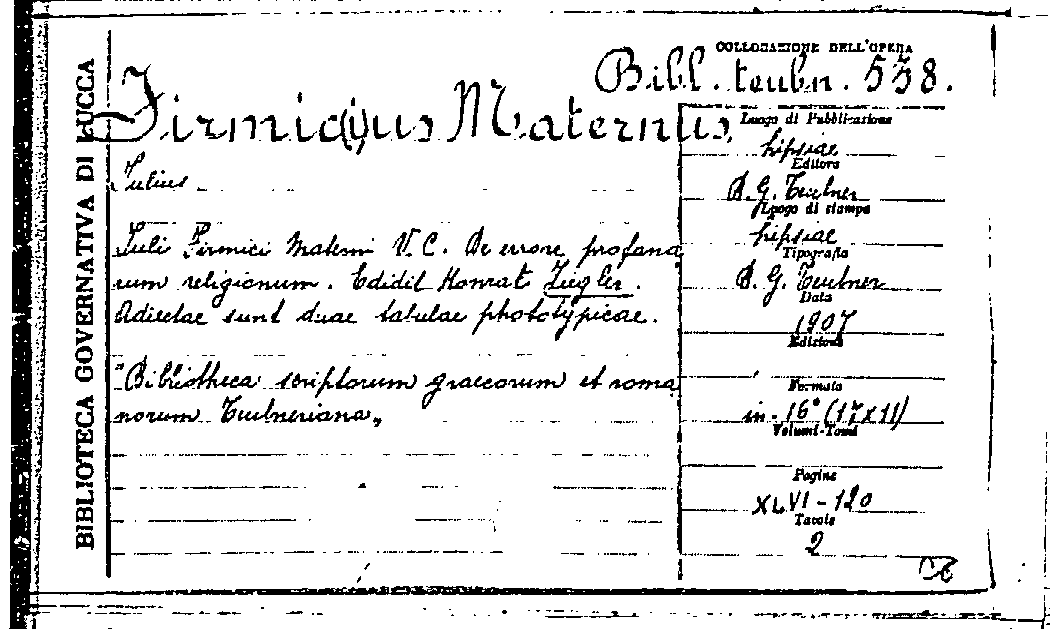 BIBLIOTECA GOVERNATIVA DI LUCCA
COLLOCAZIONE DELL'OPERA
Bibl. teubn. 538.
Firmic(i)us Maternus,
Julius
Juli Firmici Materni V. C. De errore profana
rum religionum. Edidit Konrat Ziegler.
Adiectae sunt duae tabulae phototypicae.
"Bibliotheca scriptorum graecorum et roma
norum Teubneriana„
Luogo di Pubblicazione
Lipsiae
Editore
B. G. Teubner
Luogo di stampa
Lipsiae
Tipografia
B. G. Teubner
Data
1907
Edizione
Formato
in-16° (17x11)
Volumi-Tomi
Pagine
XLVI-120
Tavole
2